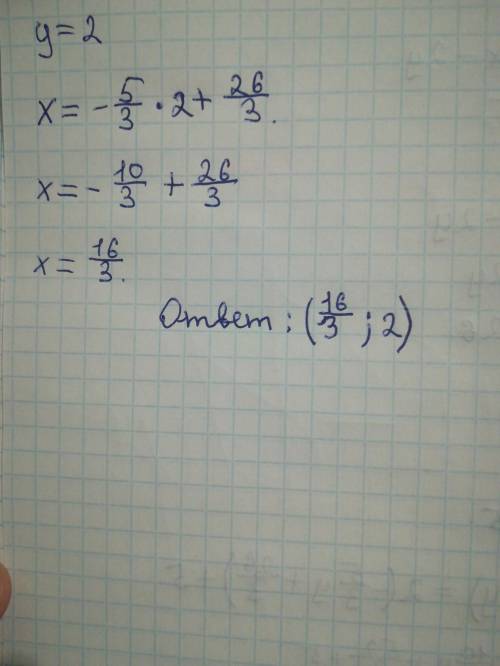 y = 2
x = - 5/3 · 2 + 26/3.
x = - 10/3 + 26/3
x = 16/3.
Ответ: (16/3 ; 2)